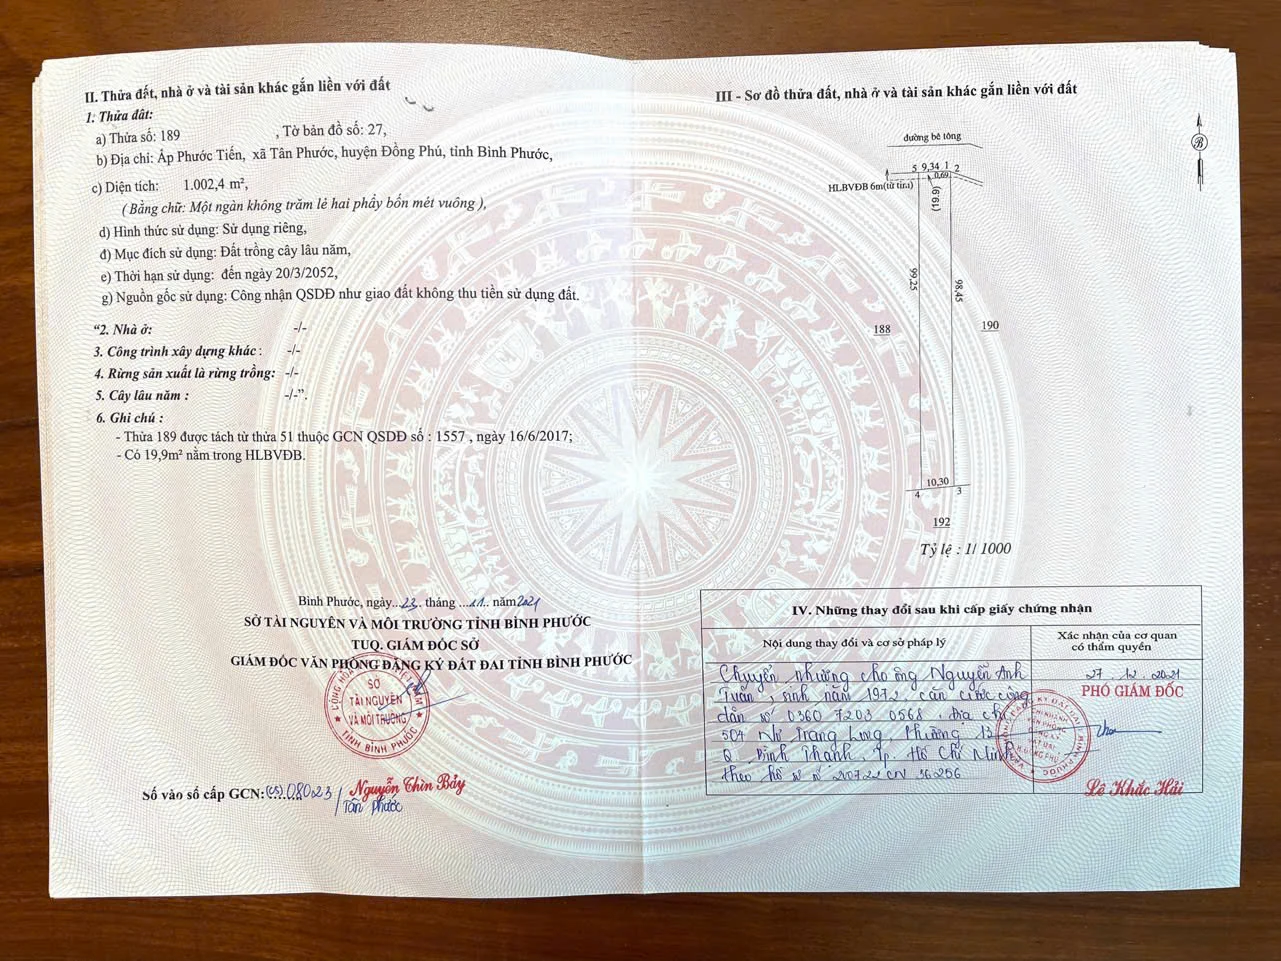 II. Thửa đất, nhà ở và tài sản khác gắn liền với đất
1. Thửa đất:
a) Thửa số: 189 , Tờ bản đồ số: 27,
b) Địa chỉ: Ấp Phước Tiến, xã Tân Phước, huyện Đồng Phú, tỉnh Bình Phước,
c) Diện tích: 1.002,4 m²,
( Bằng chữ: Một ngàn không trăm lẻ hai phẩy bốn mét vuông ),
d) Hình thức sử dụng: Sử dụng riêng,
đ) Mục đích sử dụng: Đất trồng cây lâu năm,
e) Thời hạn sử dụng: đến ngày 20/3/2052,
g) Nguồn gốc sử dụng: Công nhận QSDĐ như giao đất không thu tiền sử dụng đất.
“2. Nhà ở: -/-
3. Công trình xây dựng khác : -/-
4. Rừng sản xuất là rừng trồng: -/-
5. Cây lâu năm : -/-”.
6. Ghi chú :
- Thửa 189 được tách từ thửa 51 thuộc GCN QSDĐ số : 1557 , ngày 16/6/2017;
- Có 19,9m² nằm trong HLBVĐB.
Bình Phước, ngày...23.. tháng ...11.. năm2021
SỞ TÀI NGUYÊN VÀ MÔI TRƯỜNG TỈNH BÌNH PHƯỚC
TUQ. GIÁM ĐỐC SỞ
GIÁM ĐỐC VĂN PHÒNG ĐĂNG KÝ ĐẤT ĐAI TỈNH BÌNH PHƯỚC
SỞ
TÀI NGUYÊN
VÀ MÔI TRƯỜNG
TỈNH BÌNH PHƯỚC
Nguyễn Thìn Bảy
Số vào sổ cấp GCN:(CS).08023/
Tân Phước
III - Sơ đồ thửa đất, nhà ở và tài sản khác gắn liền với đất
đường bê tông
5 9,34 1 2
0,69
HLBVĐB 6m(từ tim)
99,25
98,45
188
190
10,30
4 3
192
Tỷ lệ : 1/ 1000
IV. Những thay đổi sau khi cấp giấy chứng nhận
Nội dung thay đổi và cơ sở pháp lý
Xác nhận của cơ quan
có thẩm quyền
Chuyển nhượng cho ông Nguyễn Anh
Tuấn, sinh năm 1972, căn cước công
dân số 036072030568. Địa chỉ
504 Nơ Trang Long, Phường 13
Q. Bình Thạnh, Tp Hồ Chí Minh
theo hồ sơ số
27 12 2021
PHÓ GIÁM ĐỐC
Lê Khắc Hải